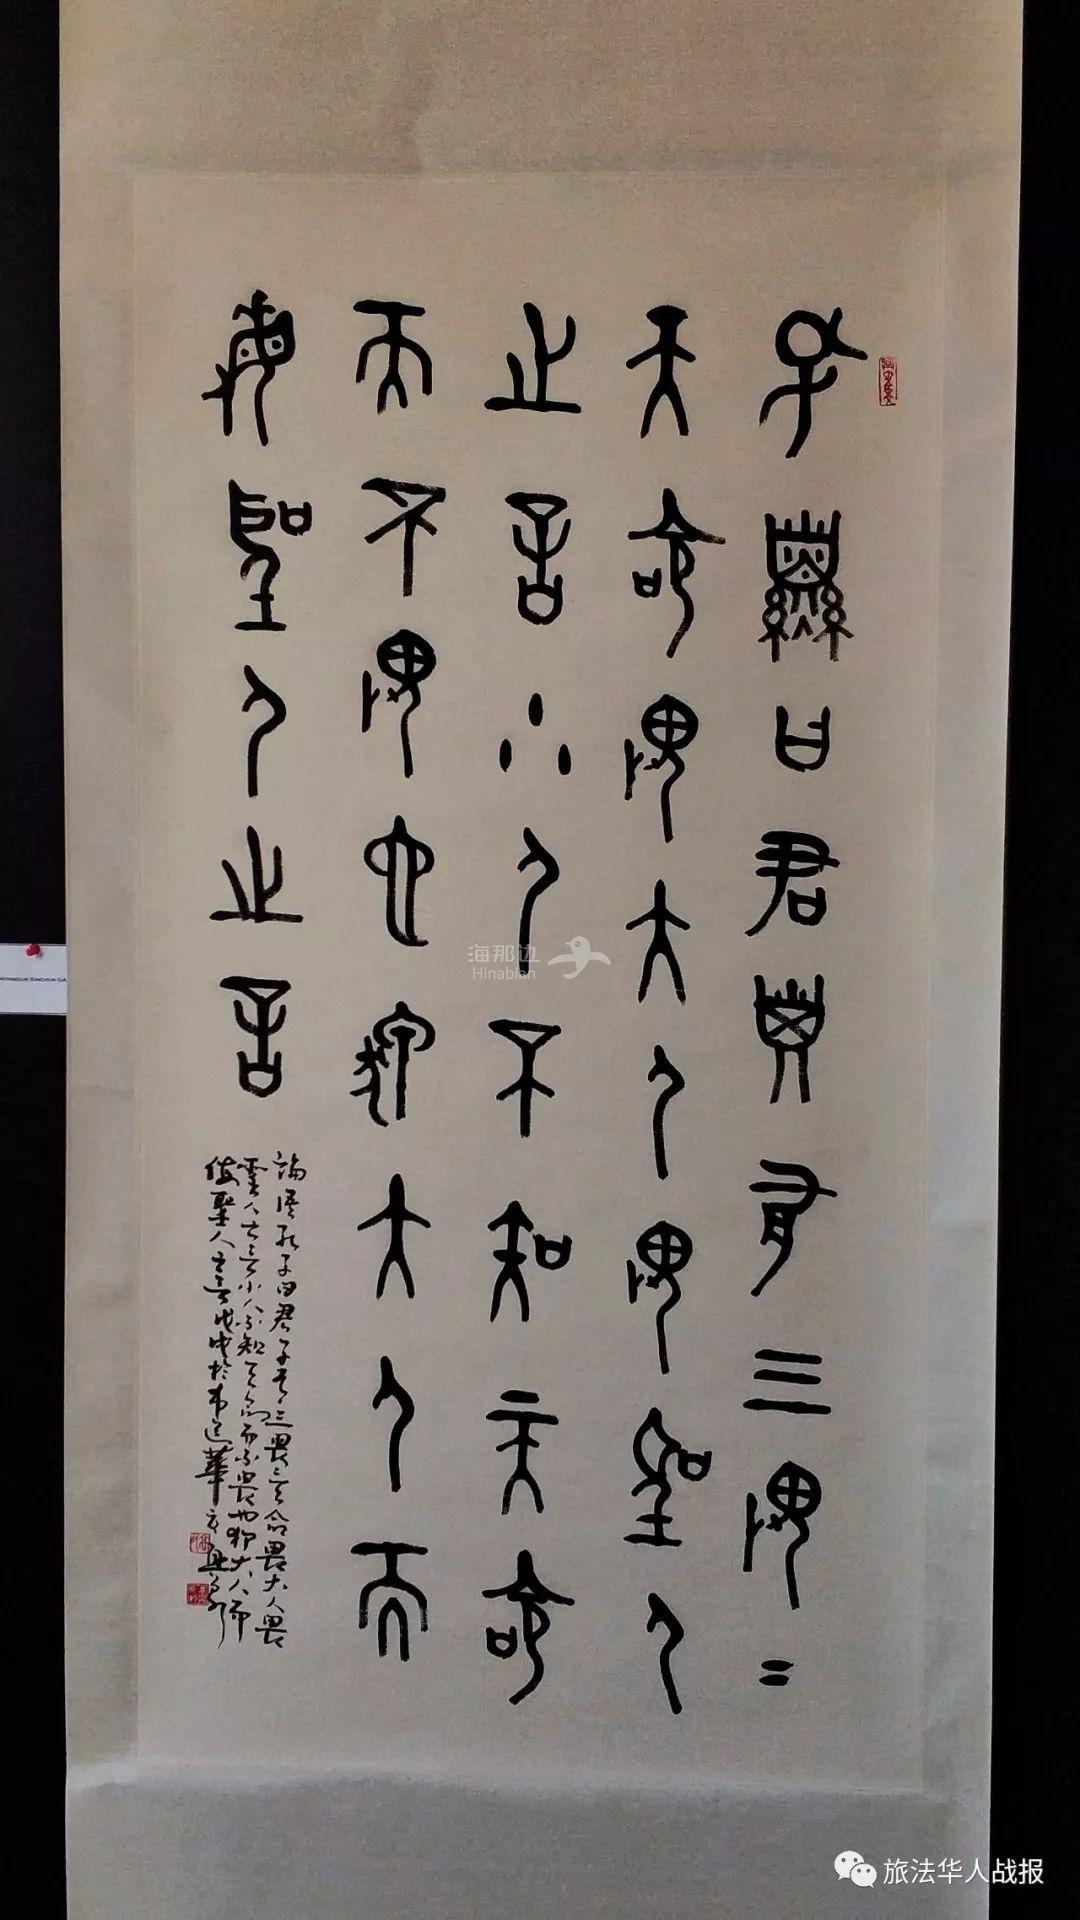 孔子曰君子有三畏=
天命畏大人畏聖人
之言小人不知天命
而不畏也狎大人而
侮聖人之言
論語孔子曰君子有三畏天命畏大人畏
聖人之言小人不知天命而不畏也狎大人而
侮聖人之言戊戌於
海那边
Hinabian
旅法华人战报